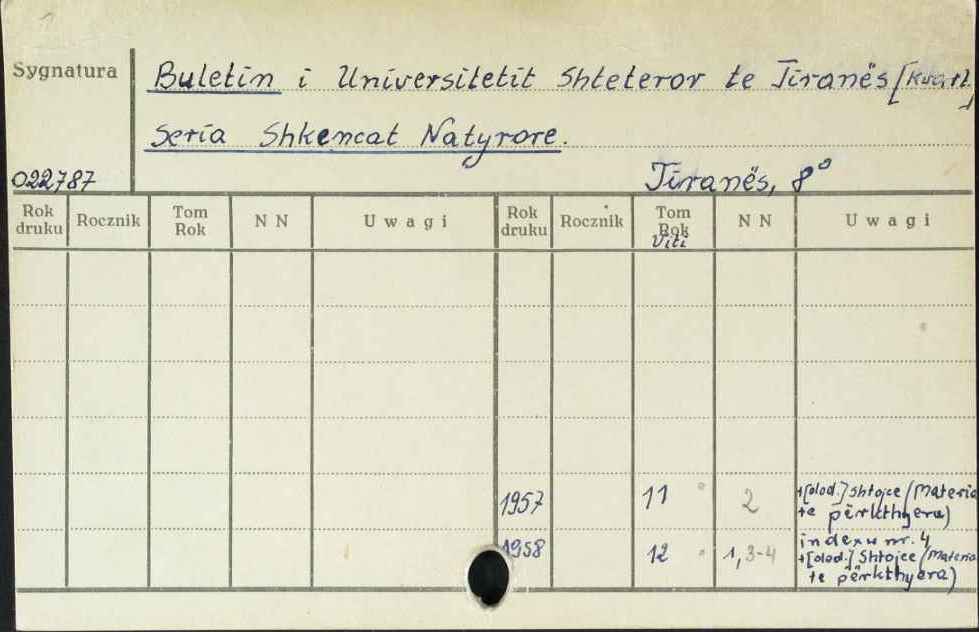 1
Sygnatura
Buletin i Universitetit Shteteror te Tiranës [Kwart]
Seria Shkencat Natyrore.
022787
Tiranës, 8°
Rok druku Rocznik Tom Rok N N Uwagi Rok druku Rocznik Tom Rok Viti N N Uwagi
1957 11 2 +[dod.] Shtojce (Materia
te përkthyera)
1958 12 1, 3-4 indexu nr. 4
+[dod.] Shtojce (Materia
te përkthyera)